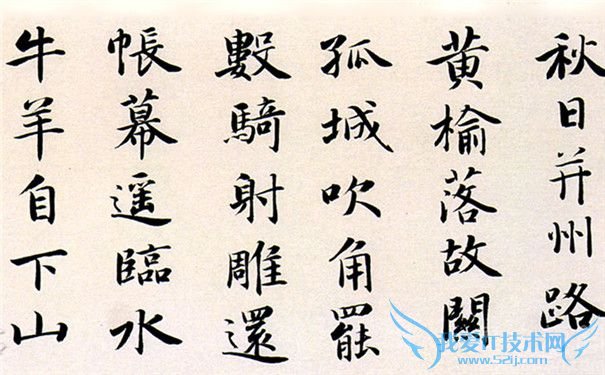 秋日并州路
黄榆落故關
孤城吹角罷
數騎射雕還
帳幕遥臨水
牛羊自下山
我爱IT技术网
www.52ij.com